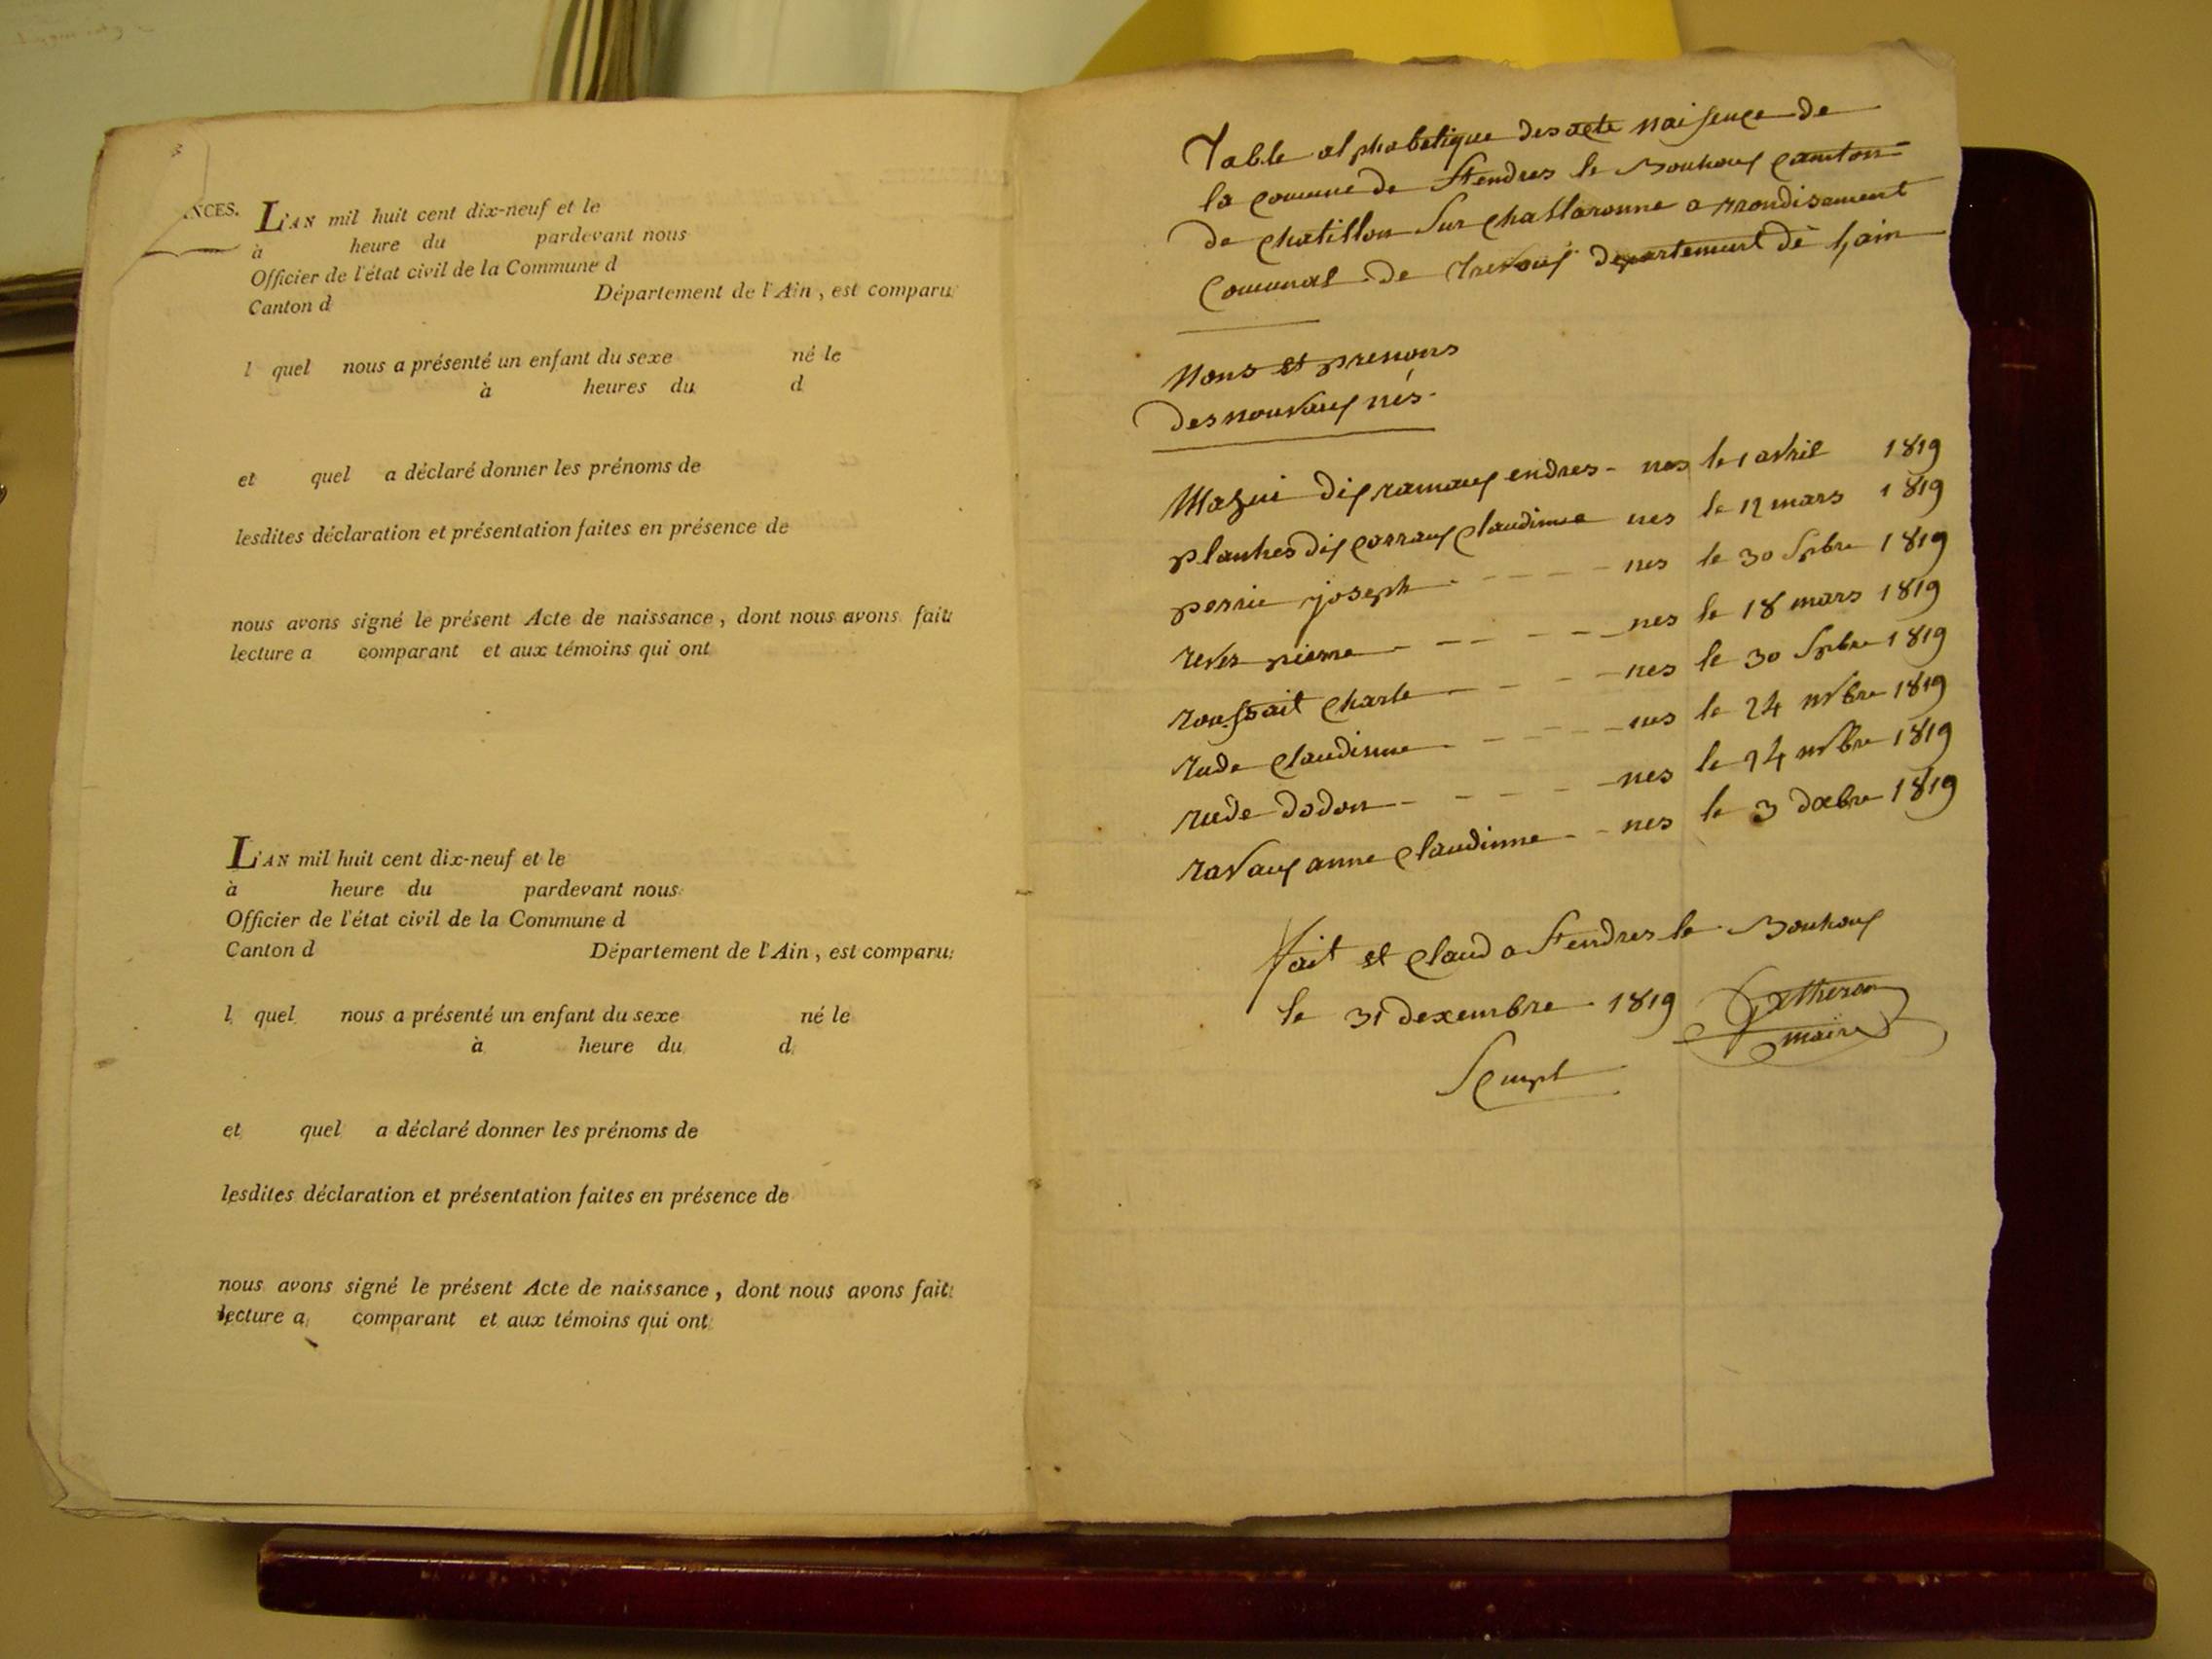 NCES.
L'AN mil huit cent dix-neuf et le
à heure du pardevant nous
Officier de l'état civil de la Commune d
Canton d Département de l'Ain , est comparu
l quel nous a présenté un enfant du sexe né le
à heures du d
et quel a déclaré donner les prénoms de
lesdites déclaration et présentation faites en présence de
nous avons signé le présent Acte de naissance , dont nous avons fait
lecture a comparant et aux témoins qui ont
L'AN mil huit cent dix-neuf et le
à heure du pardevant nous
Officier de l'état civil de la Commune d
Canton d Département de l'Ain , est comparu
l quel nous a présenté un enfant du sexe né le
à heure du d
et quel a déclaré donner les prénoms de
lesdites déclaration et présentation faites en présence de
nous avons signé le présent Acte de naissance , dont nous avons fait
lecture a comparant et aux témoins qui ont
Table alphabetique des acte naisence de
la comune de st endres le Bouhoux canton
de chatillon sur challaronne arrondisement
comunal de trevoux departement de lain
Nons et prenons
des nouvaux nés
Mazui dix ramaux endres - nes le 1 avril 1819
planhes dix carraux claudinne nes le 12 mars 1819
perrie joseph - - - - nes le 30 spbre 1819
pierre - - - - nes le 18 mars 1819
roussait charle - - - - nes le 30 spbre 1819
rude claudinne - - - - nes le 24 nvbre 1819
rude dodon - - - - nes le 24 nvbre 1819
ravaux anne claudinne - - nes le 3 dcbre 1819
fait et claud a st endres le Bouhoux
le 31 dexembre 1819
maire